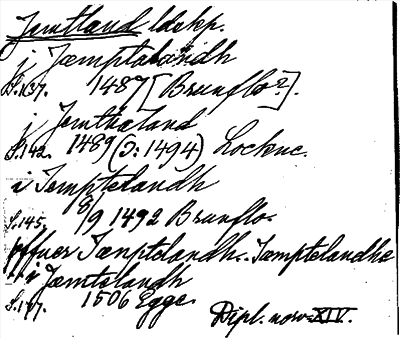 Jemtland ldskp.
i Jæmptalandh
S.137. 1487 [Brunflo?].
i Jemthaland
S.142. 1489 (ɔ: 1494) Lockne.
i Jemptelandh
S.145, 8/9 1492 Brunflo.
offuer Jænptelandh. Jæmptelandhe
i Jæmtelandh
S.177. 1506 Egge.
Dipl. norv. XIV.